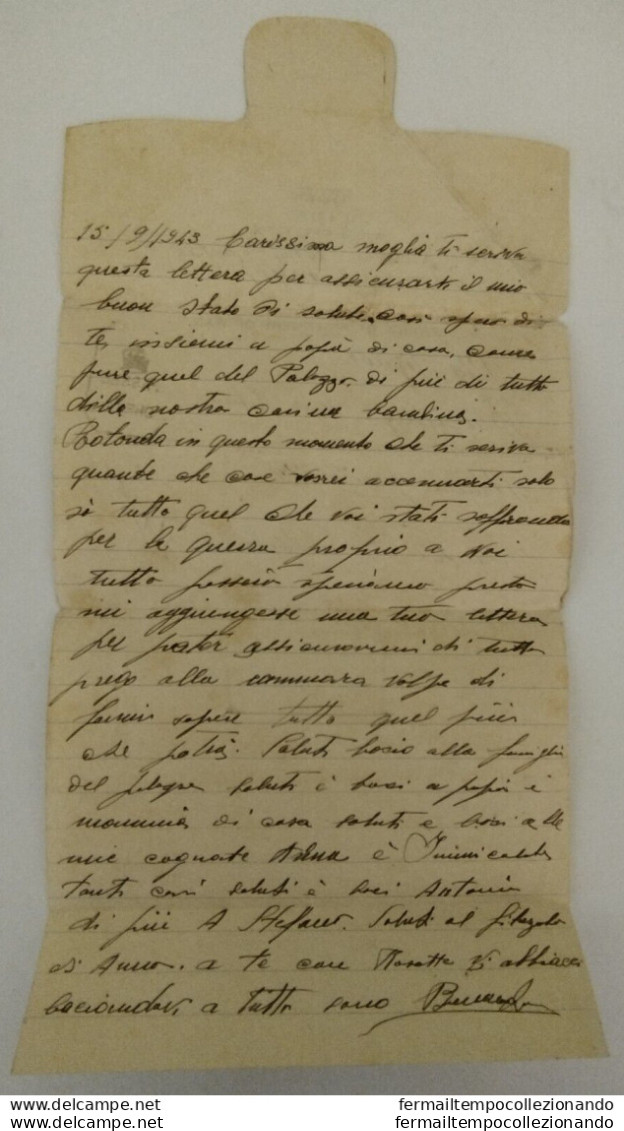 15/9/1943 Carissima moglia ti scriva
questa lettera per assicurarti il mio
buon stato di salute, cosi spero di
te, insiemi a papà di casa, come
pure quel del Palazzo. di piú di tutto
della nostra carina bambina.
in questo momento che ti scriva
quante che cose vorei accennarti solo
sò tutto quel che voi stati soffrendo
per la guerra proprio a voi
tutto passerà speriamo presto
mi aggiungesse una tua lettera
per poter assicurarmi di tutto
prego alla commara Volpe di
farmi sapere tutto quel piú
che potrà. Saluti bacio alla famiglia
del saluti è baci a papà è
mammà di casa saluti e baci alle
mie cognate Anna è
tanti cari saluti è baci Antonio
di piú A Steffano. Saluti al
di Anna. a te con Rosetta Vi abbracci
baciandovi a tutto sono
fermailtempocollezionando.com
fermailtempocollezionando.com